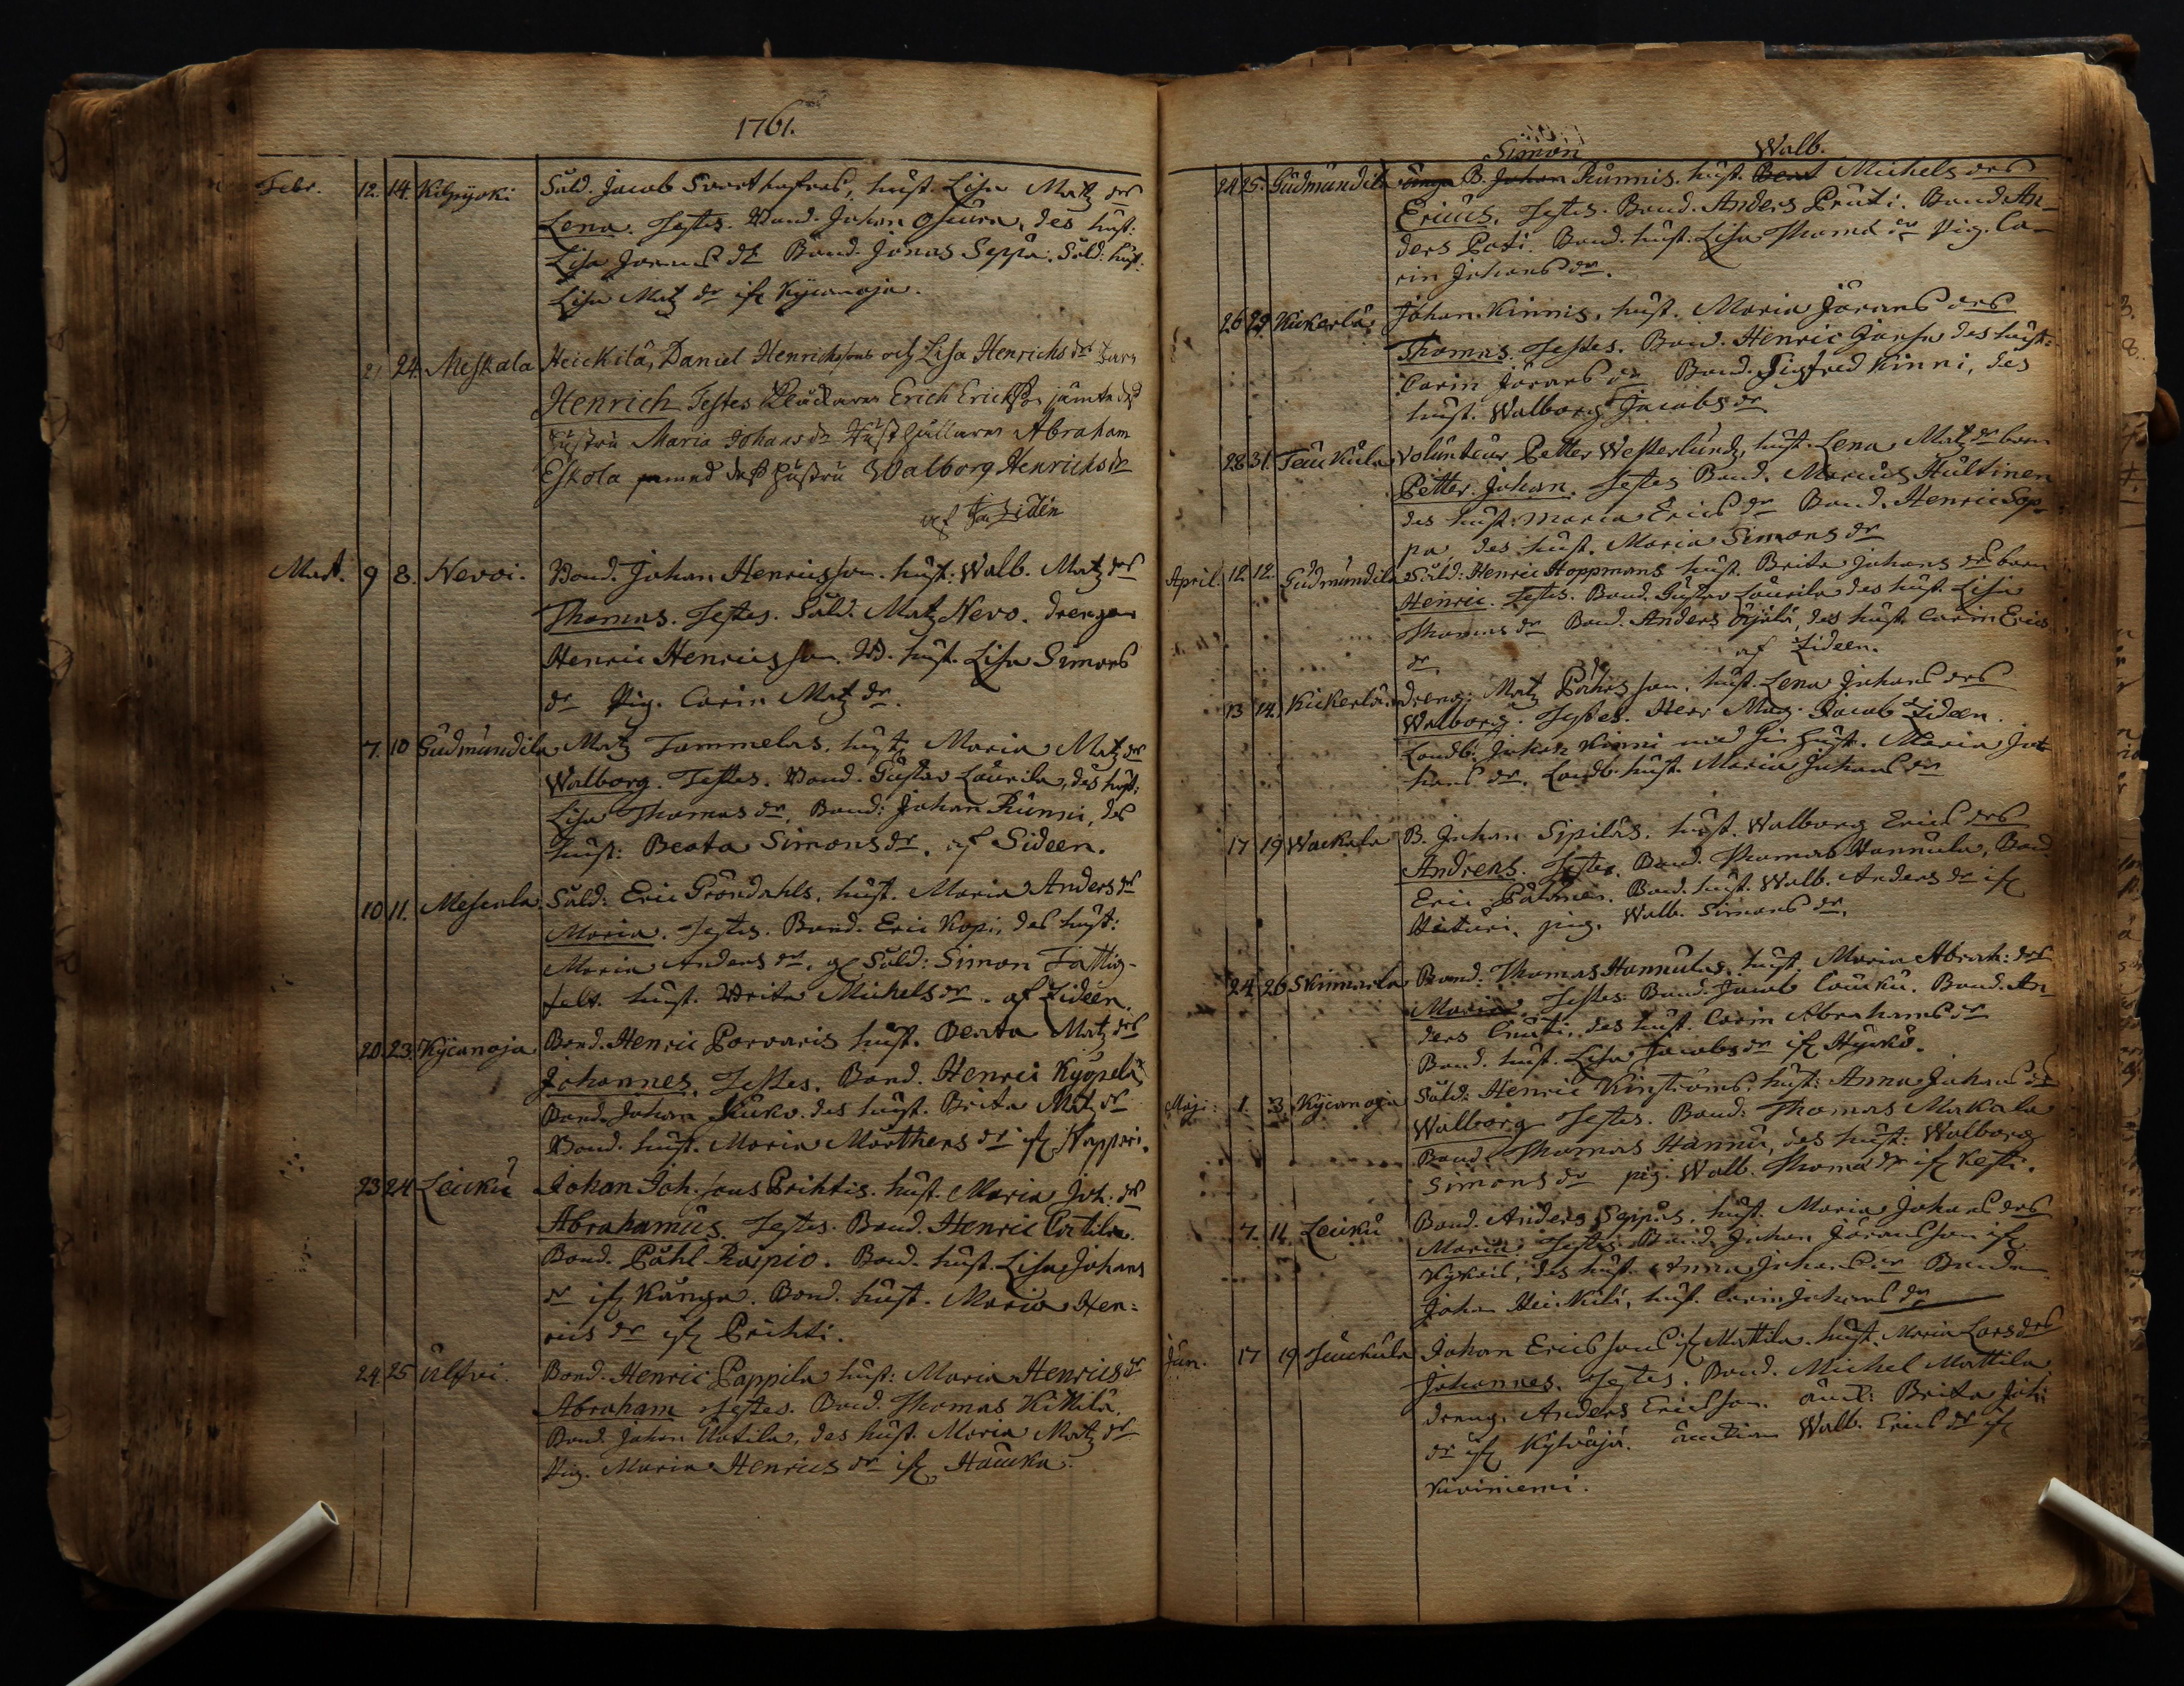 1761.
Febr. 12. 14. Kilpijoki Såld. Jacob Svarthafras, hust. Lisa Matz drs
Lena. Testes. Bond. Johan des hust:
Lisa Jörans dr Bond. Jonas Seppä. Såld: hust.
Lisa Matz dr ifr Kyönoja.
21 24. Meskala Heickilä, Daniel Henrichsons och Lisa Henrichs dr barn
Henrich Testes Klåckaren Erich Erichson jämte deß
hustru Maria Johans dr Husthållaren Abraham
Eskola med deß hustru Walborg Henrichs dr
af Zidén
Mart. 9 8. Nevoi. Bond. Johan Henricsson. hust: Walb. Matz drs
Thomas. Testes. Såld. Matz Nevo. drengen
Henric Henricsson. B. hust. Lisa Simons
dr Pig. Carin Matz dr.
7. 10 Gudmundila Matz Tammelas, hust Maria Matz drs
Walborg. Testes. Bond. Gustav Laurila, des hust:
Lisa Thomas dr, Bond: Johan Runni, des
hust: Beata Simons dr. af Sideen.
10 11. Mescala. Såld: Eric Gröndahls, hust. Maria Anders drs
Maria. Testes. Bond. Eric Kopi, des hust:
Maria Anders dr. Såld: Simon Fattig-
felt. hust. Brita Michels dr. af Zideen.
20. 23. Kyöanoja Bond. Henric Porvaris hust. Beata Matz drs
Johannes. Testes. Bond. Henric Kyöpeli
Bond. Johan des hust. Brita Matz dr
Bond. hust. Maria Mårthens dr ifr Nappari.
23 24 Leiuku Johan Joh. sons Prihtis. hust. Maria Joh. drs
Abrahamus. Testes. Bond. Henric Cartila.
Bond. Påhl Raspio. Bond. hust. Lisa Johans
dr ifr Kånga. Bond. hust. Maria Hen=
rics dr ifr Prihti.
24. 25 Ulfvi. Bond. Henric Pappila hust: Maria Henrics drs
Abraham Testes. Bond. Thomas Kikkilä.
Bond. Johan Uotila, des hust. Maria Matz dr
Pig. Maria Henrics dr ifr Hauka.
Simon Walb.
24 25. Gudmundila unga B. Johan Runnis. hust. Beat Michels drs
Ericus. Testes. Bond. Anders Pruti. Bond. An-
ders Poti. Bond. hust: Lisa Thomæ dr Pig. Ca-
rin Johans dr.
26 29 Kickerlä Johan Kinnis, hust. Maria Jörans drs
Thomas. Testes. Bond. Henric Jonsu des hust:
Carin Jörans dr Bond. Sigfred Kinni, des
hust. Walborg Jacobs dr
28 31. Teuckula Volunteur Petter Westerlunds, hust. Lena Matz dr barn
Petter Johan. Testes Bond. Marcus Hultinen
des hust: Maria Erics dr Bond. Henric Sep-
pa, des hust. Maria Simons dr
April. 12. 12. Gudmundila Såld: Henric Hoppmans hust. Brita Johans dr barn
Henric. Testes. Bond. Gustav Laurila des hust. Lisa
Thomas dr Bond. Anders Äijälä, des hust. Carin Erics
dr af Zideen.
13 14. Kickerlä. dreng: Matz Påhlsson. hust. Lena Johans drs
Walborg. Testes. Herr Mag. Jacob Zideen.
Landb. Johan Kinni med sin hust. Maria Jo-
hans dr. Landb. hust. Maria Johans dr
17 19 Wackala B. Johan Sipiläs. hust. Walborg Erics drs
Andreas. Testes. Bond. Thomas Hannula, Bond.
Eric Påhner. Bond. hust. Walb. Anders dr ifr
Haituri, pig. Walb. Simons dr.
24 26 Skinnarla Bond. Thomas Hannulas, hust. Maria Abrah: drs
Maria. Testes: Bond. Jacob Cauku. Bond. An-
ders Cruti, des hust. Carin Abrahams dr
Bond. hust. Lisa Jacobs dr ifr Hyrkö.
Maji: 1. 3. Kyöanoja Såld: Henric Kingströms, hust: Anna Johans dr
Walborg Testes. Bond: Thomas Makala
Bond. Thomas Hannu, des hust: Walborg
Simons dr pig. Walb. Thomæ dr ifr Kesti.
7. 11. Leuku Bond. Anders Seppäs, hust. Maria Johans drs
Maria. Testes Bond. Johan Jöransson ifr
des hust. Anna Johans dr Bonden
Johan Heickilä, hust. Carin Johans dr
Jun. 17 19 Teuckula Johan Ericssons ifr Mattila. hust. Maria Lars drs
Johannes. Testes. Bond. Michel Mattila
dreng. Anders Ericsson. Brita Joh:
dr ifr Kylväjä. Walb. Erics dr ifr
Kiviniemi.